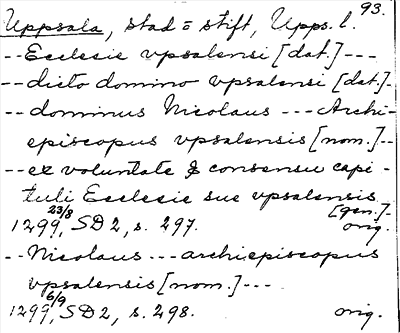 93.
Uppsala, stad o stift, Upps. l.
-- Ecclesie vpsalensi [dat.] ---
-- dicto domino vpsalensi [dat.] -
-- dominus Nicolaus --- Archi-
episcopus vpsalensis [nom.] --
-- ex voluntate & consensu capi-
tuli Ecclesie sue vpsalensis
[gen.] -
1299 23/8, SD 2, s. 297. orig.
-- Nicolaus --- archiepiscopus
vpsalensis [nom.] ---
1299 6/9, SD 2, s. 298. orig.